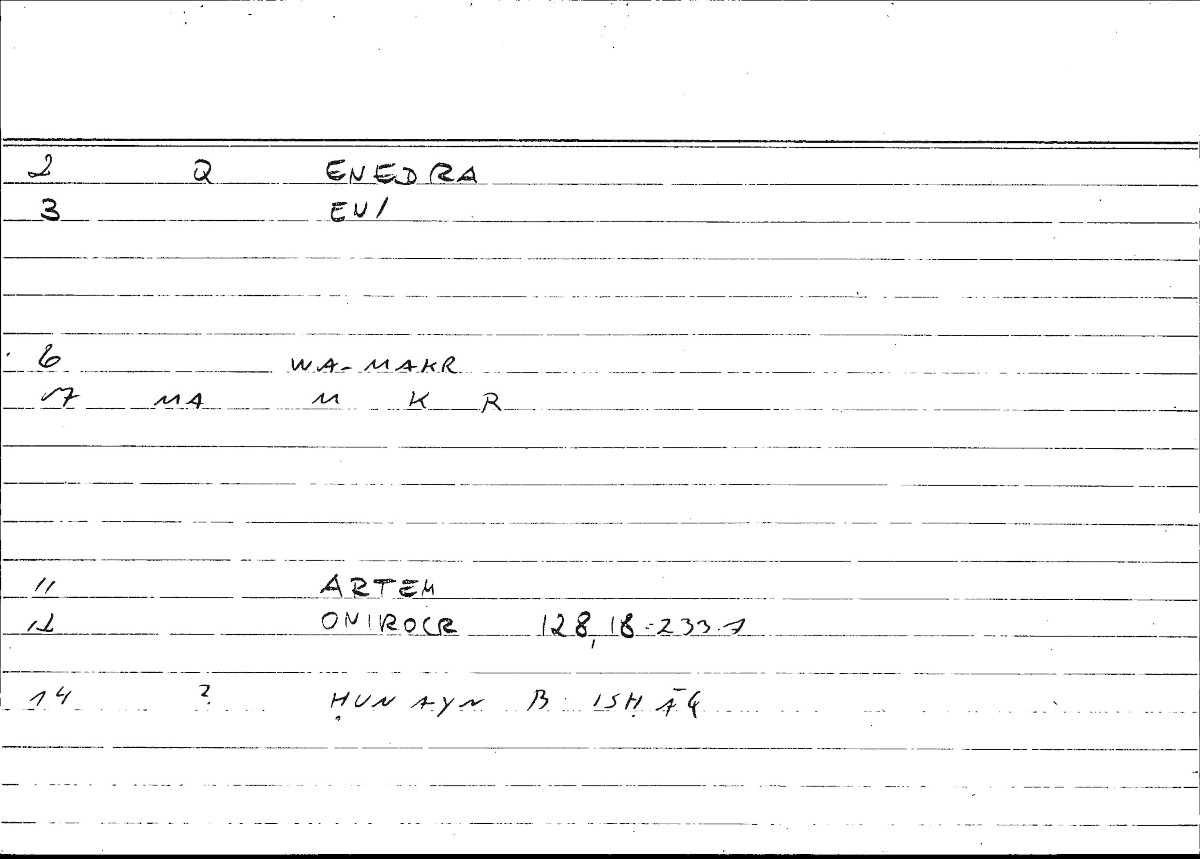 2 Q ENEDRA
3 EN/
6 WA-MAKR
7 MA M K R
11 ARTEM
12 ONIROCR 128,18-233.7
14 ? ḤUNAYN B. ISḤĀQ